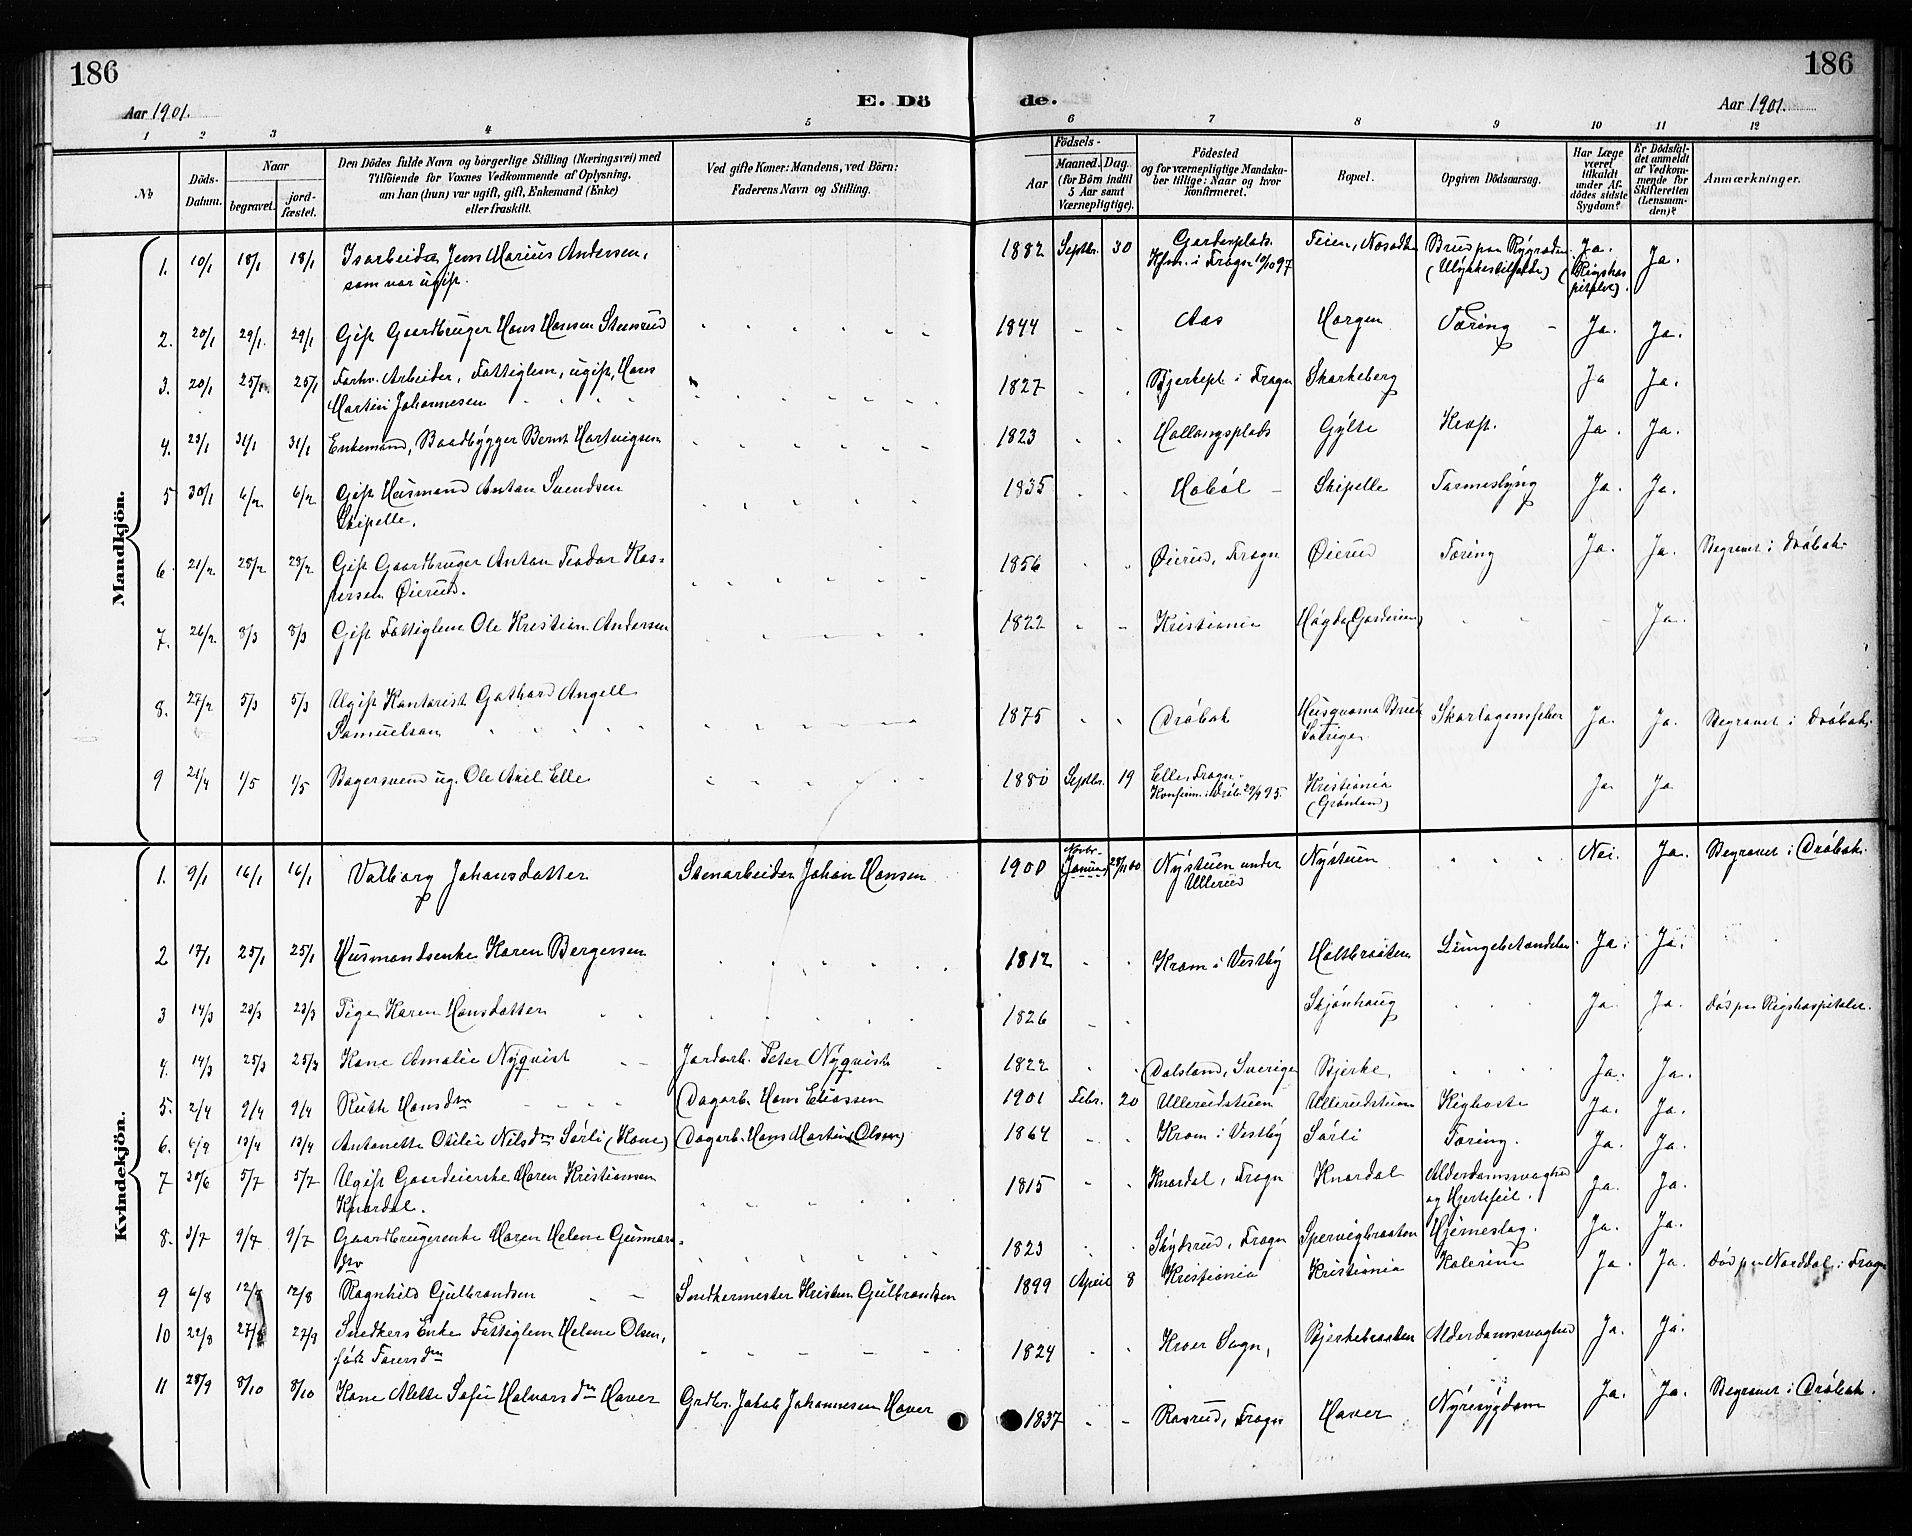 186
186
Aar 1901.
E. Dö
de.
Aar 1901.
1 2 3 4 5 6 7 8 9 10 11 12
No
Döds-
Datum.
Naar
begravet.
jord-
fæstet.
Den Dödes fulde Navn og borgerlige Stilling (Næringsvei) med
Tilföiende for Voxnes Vedkommende af Oplysning,
om han (hun) var ugift, gift, Enkemand (Enke)
eller fraskilt.
Ved gifte Koner: Mandens, ved Börn:
Faderens Navn og Stilling.
Födsels-
Aar
Maaned. Dag.
(for Börn indtil
5 Aar samt
Værnepligtige).
Födested
og for værnepligtige Mandska-
ber tillige: Naar og hvor
konfirmeret.
Bopæl.
Opgiven Dödsaarsag.
Har Læge
været
tilkaldt
under Af-
dödes sidste
Sygdom?
Er Dödsfal-
det anmeldt
af Vedkom-
mende for
Skifteretten
(Lensman-
den)?
Anmærkninger.
Mandkjön.
1. 10/1 18/1 18/1 Isarbeider Jens Marius Andersen, 1882 Septbr. 30 Gardenplads. Teien, Nesodden Brud paa Rygraden Ja. Ja.
som var ugift. Kfm. i Frogn 10/10 97 (Ulykkestilfælde) (Rigshos
pitalet).
2. 20/1 29/1 29/1 Gift Gaardbruger Hans Hansen Stenrud 1844 Aas Horgen Tæring Ja. Ja.
3. 20/1 25/1 25/1 Forhv. Arbeider, Fattiglem, ugift, Hans 1827 Bjerkepl. i Frogn Skorkeberg Ja Ja.
Martin Johannesen
4. 23/1 31/1 31/1 Enkemand, Baadbygger Bernt Hartvigsen 1823 Hallangsplads Gylte Kræft. Ja. Ja.
5 30/1 6/2 6/2 Gift Husmand Anton Svendsen 1835 Hobøl Skipelle Tarmeslyng Ja. Ja.
Skipelle.
6. 21/2 28/2 28/2 Gift Gaardbruger Anton Teodor Kas- 1856 Øierud, Frogn Øierud Tæring Ja. Ja. Begravet i Drøbak.
persen Øierud.
7. 26/2 8/3 8/3 Gift Fattiglem Ole Kristian Andersen 1822 Kristiania Høgda (Garderien) Ja.
8. 27/2 5/3 5/3 Ugift Kontorist Gothard Angell 1875 Drøbak Husqvarna Bruk Skarlagensfeber Ja. Ja. Begravet i Drøbak.
Samuelson Sverige
9 21/4 1/5 1/5 Bagersvend ug. Ole Axel Elle 1880 Septbr. 19 Elle, Frogn. Kristiania Ja Ja
Konfirm. i Drøb. 29/9 95. (Grønland)
Kvindekjön.
1. 9/1 16/1 16/1 Valborg Johansdatter Stenarbeider Johan Hansen 1900 Novbr. (Januar) 28/11 00 Nystuen under Nystuen Nei. Ja. Begravet i Drøbak.
Ullerud
2 17/1 25/1 25/1 Husmandsenke Karen Bergersen 1812 Krom i Vestby Holtbraaten Lungebetændelse. Ja. Ja.
3 14/3 23/3 23/3 Pige Karen Hansdatter 1826 Skjønhaug Ja. Ja. Død paa Rigshospitalet.
4. 14/3 25/3 25/3 Kone Amalie Nyqvist Jordarb. Peter Nyqvist 1822 Dalsland, Sverige Bjerke Ja. Ja.
5. 2/4 9/4 9/4 Ruth Hansdtr Dagarb. Hans Eliassen 1901 Febr. 20 Ullerudstuen Ullerudstuen Kighoste Ja. Ja.
6. 6/4 13/4 13/4 Antonette Otilie Nilsdtr Sørli (Kone) Dagarb. Hans Martin (Olsen) 1864 Krom i Vestby Sørli Tæring. Ja. Ja.
7 20/6 5/7 5/7 Ugift Gaardeierske Maren Kristiansen 1815 Knardal, Frogn Knardal Alderdomssvaghed Ja. Ja.
Knardal. og Hjertefeil.
8. 3/7 9/7 9/7 Gaardbrugerenke Maren Helene Gunnars- 1823 Skydsrud, Frogn Spervigbraaten Hjerneslag. Ja. Ja.
dtr
9 6/8 12/8 12/8 Ragnhild Gulbrandsen Snedkermester Kristian Gulbrandsen 1899 April 8 Kristiania Kristiania Kolerine Ja. Ja. Død paa Norddal i Frogn
10 22/8 27/8 27/9 Snedkers Enke Fattiglem Helene Olsen, 1824 Kroer Sogn, Bjerkebraaten Alderdomssvaghed Ja. Ja.
født Toversdtr
11 28/9 8/10 8/10 Kone Alette Sofie Halvorsdtr Haver Grdbr. Jakob Johannesen Haver 1837 Rosrud, Frogn Haver Nyresygdom Ja. Ja. Begravet i Drøbak.